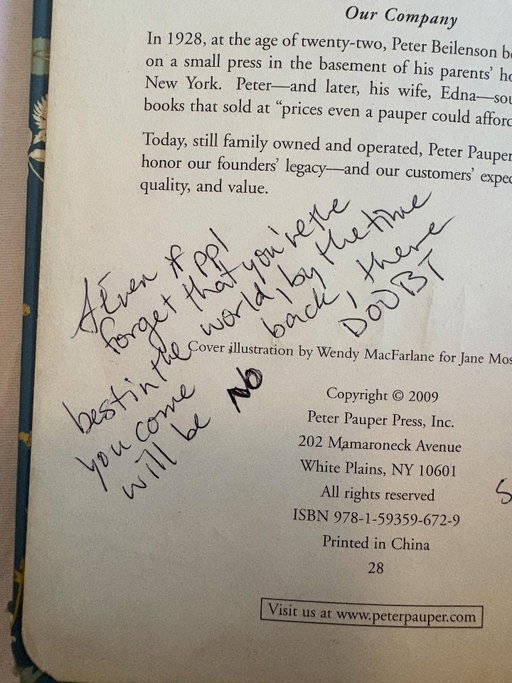 Our Company
In 1928, at the age of twenty-two, Peter Beilenson b
on a small press in the basement of his parents' ho
New York. Peter—and later, his wife, Edna—sou
books that sold at "prices even a pauper could afford
Today, still family owned and operated, Peter Pauper
honor our founders' legacy—and our customers' expec
quality, and value.
Even if ppl
forget that you're the
best in the world, by the time
you come back, there
will be NO DOUBT
Cover illustration by Wendy MacFarlane for Jane Mos
Copyright © 2009
Peter Pauper Press, Inc.
202 Mamaroneck Avenue
White Plains, NY 10601
All rights reserved
ISBN 978-1-59359-672-9
Printed in China
28
Visit us at www.peterpauper.com